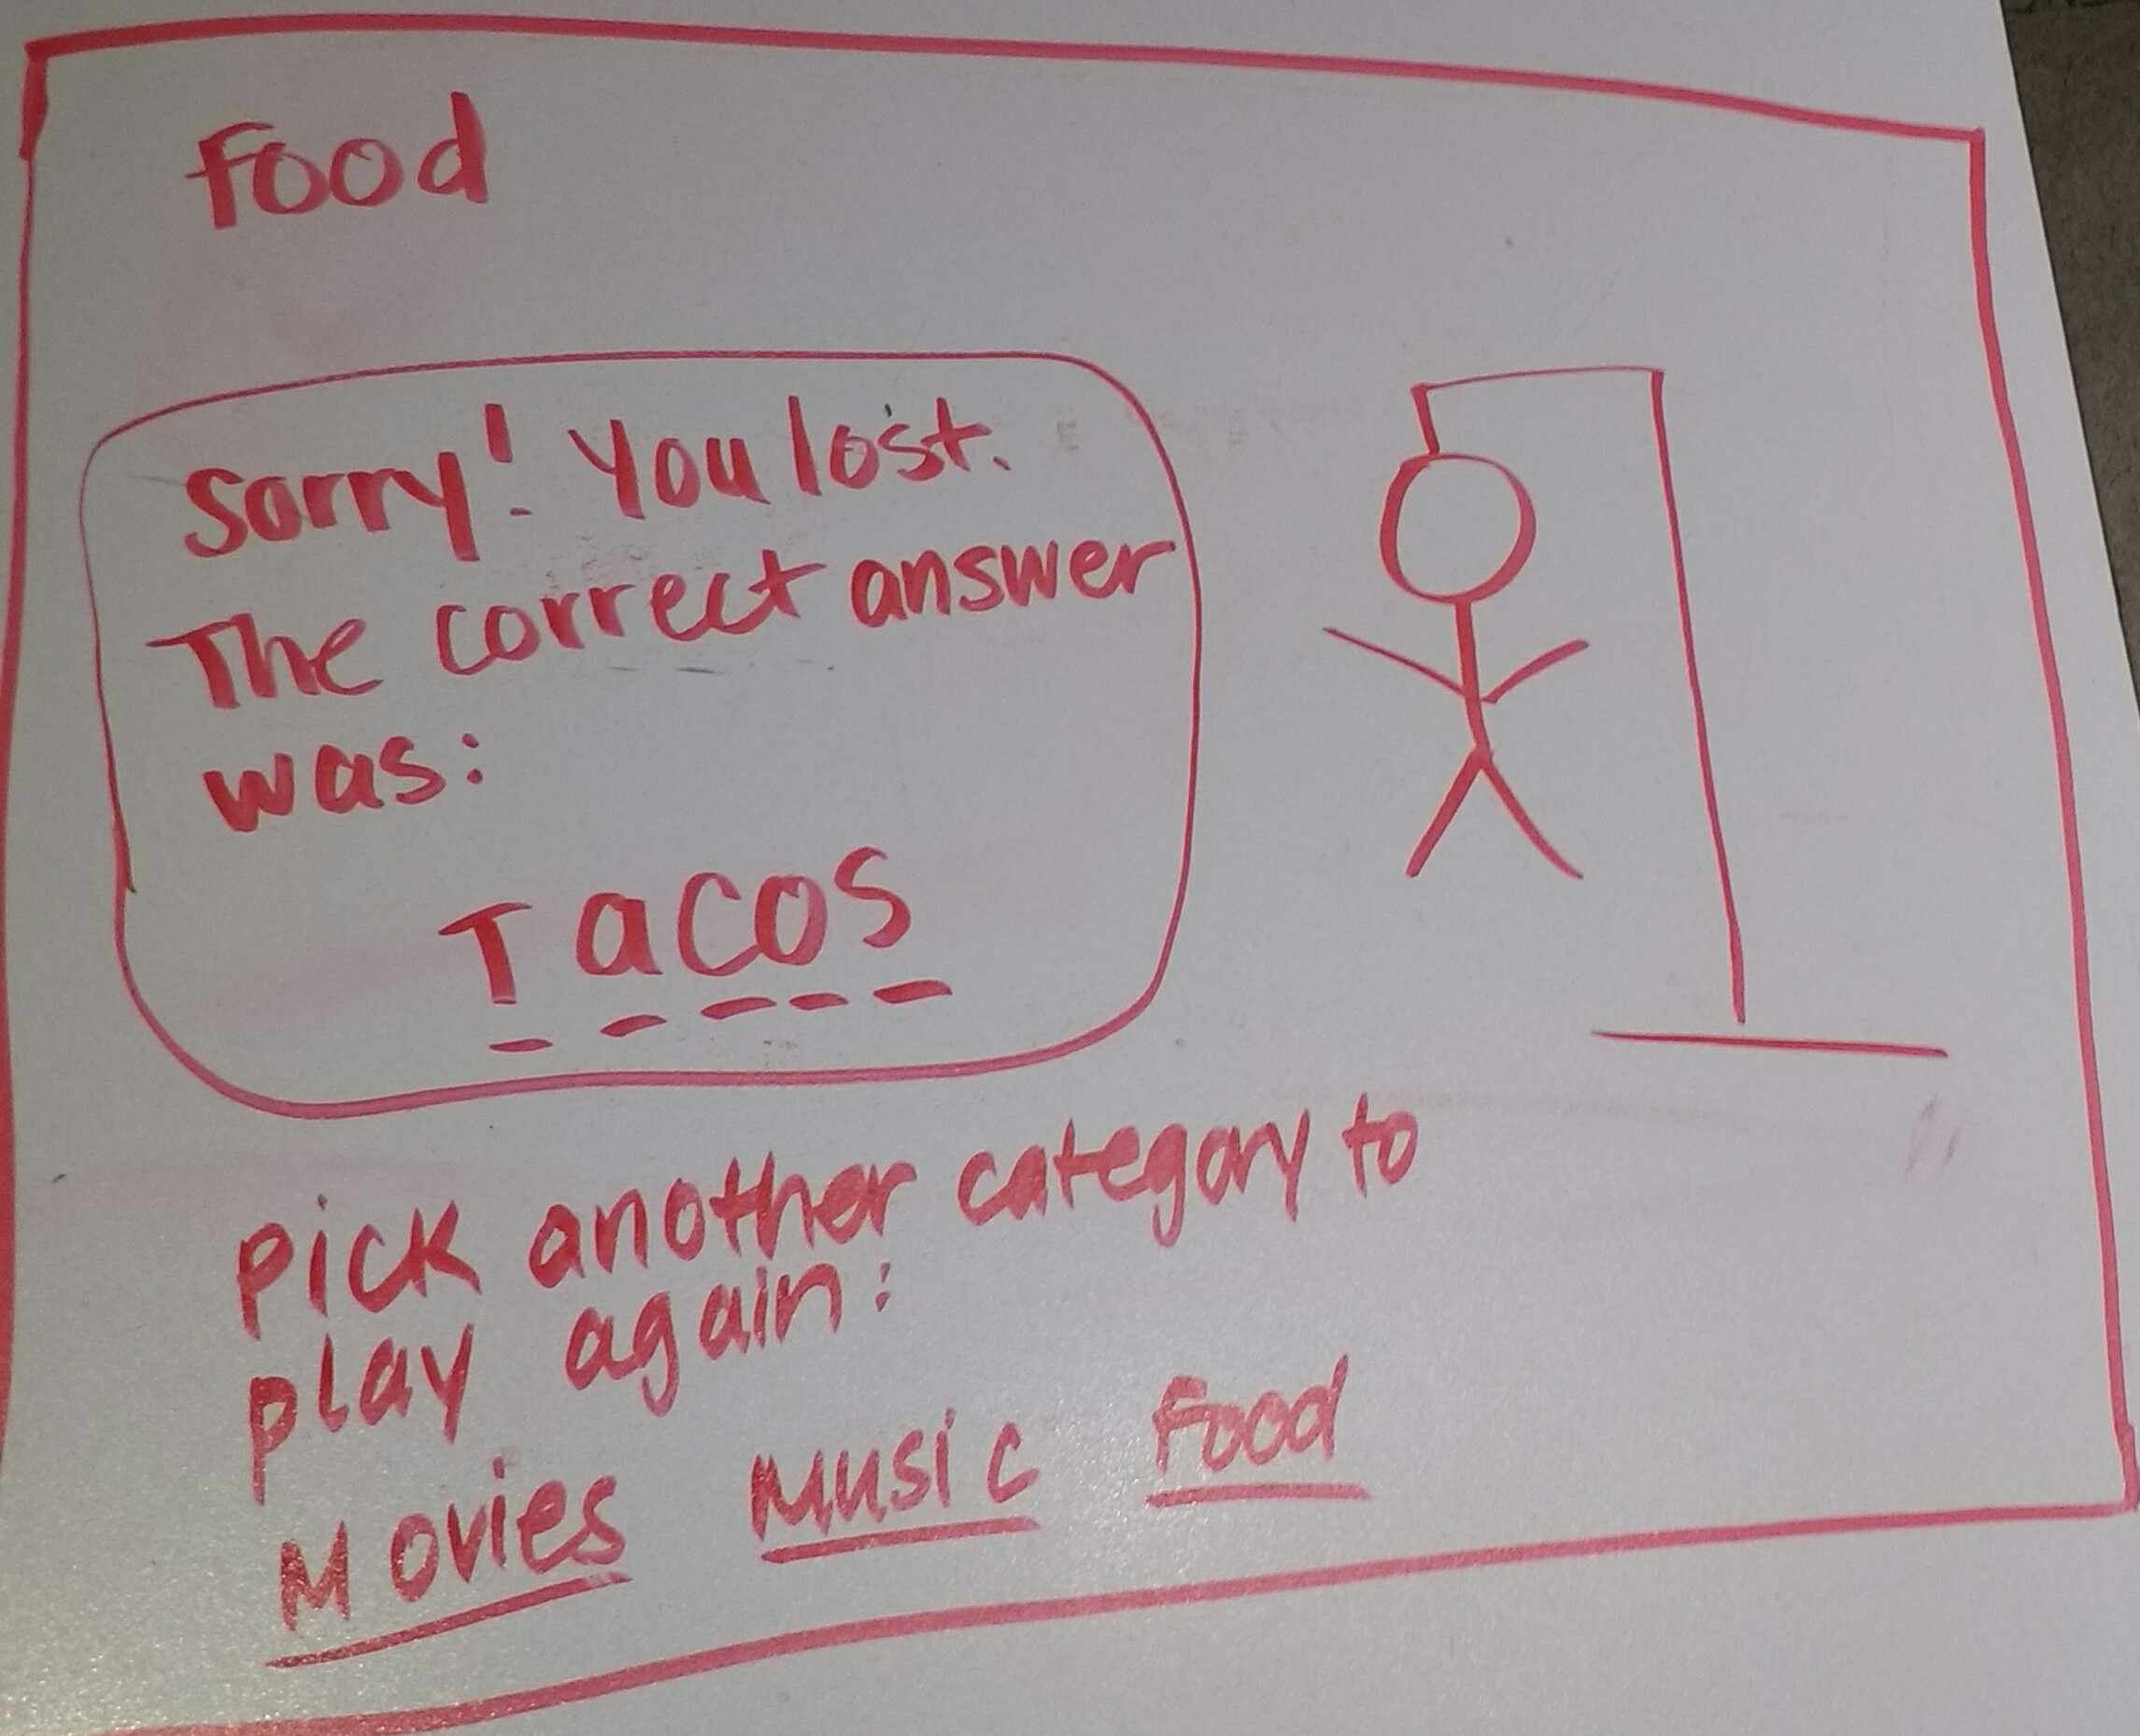 Food
Sorry! You lost.
The correct answer
was:
Tacos
Pick another category to
play again:
Movies Music Food